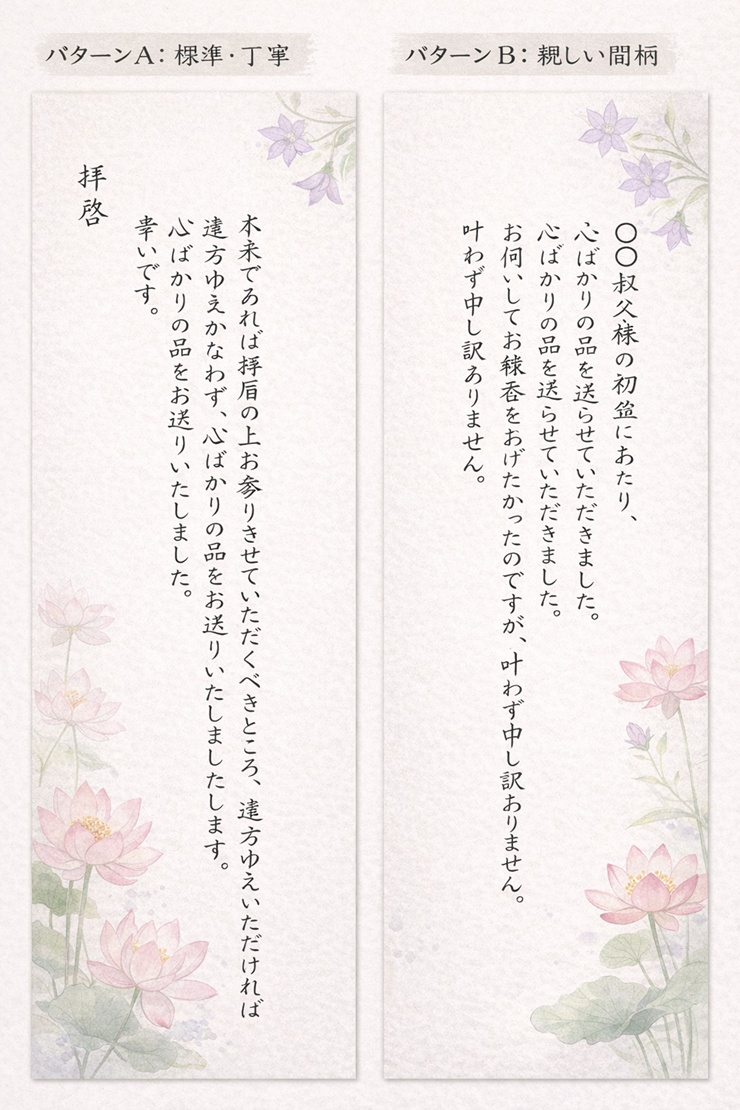 パターンA：標準・丁寧
拝啓
本来であれば拝眉の上お参りさせていただくべきところ、遠方ゆえいただければ
遠方ゆえかなわず、心ばかりの品をお送りいたしましたします。
心ばかりの品をお送りいたしました。
幸いです。
パターンB：親しい間柄
〇〇叔父様の初盆にあたり、
心ばかりの品を送らせていただきました。
心ばかりの品を送らせていただきました。
お伺いしてお線香をおげたかったのですが、叶わず申し訳ありません。
叶わず申し訳ありません。